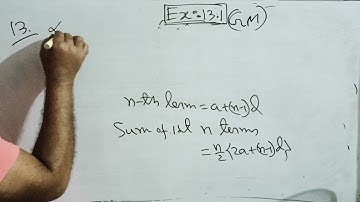 Ex:13.1 (GM)
13.
n-th term = a+(n-1)d
Sum of 1st n terms
= n/2 {2a+(n-1)d}